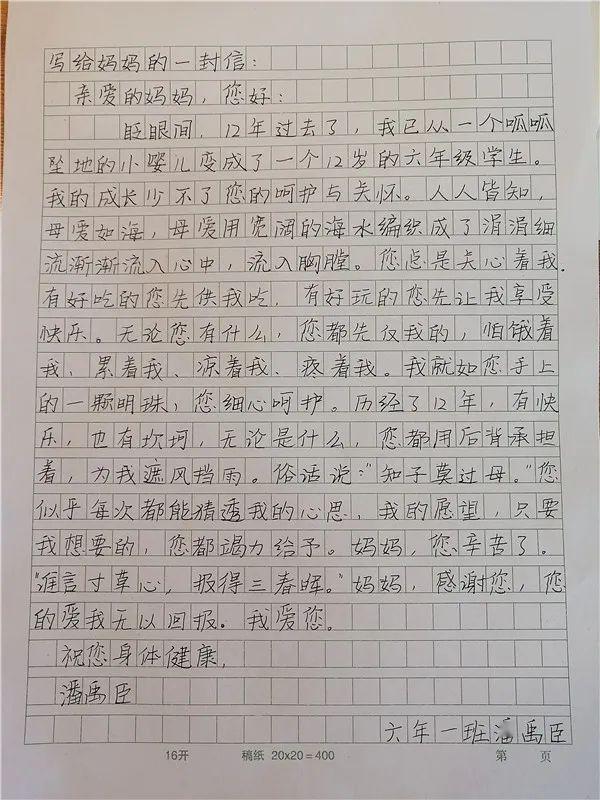 写给妈妈的一封信：
亲爱的妈妈，您好：
眨眼间，12年过去了，我已从一个呱呱
坠地的小婴儿变成了一个12岁的六年级学生。
我的成长少不了您的呵护与关怀。人人皆知，
母爱如海，母爱用宽阔的海水编织成了涓涓细
流渐渐流入心中，流入胸膛。您总是关心着我.
有好吃的您先供我吃，有好玩的您先让我享受
快乐。无论您有什么，您都先仅我的，怕饿着
我、累着我、凉着我、疼着我。我就如您手上
的一颗明珠，您细心呵护。历经了12年，有快
乐，也有坎坷，无论是什么，您都用后背承担
着，为我遮风挡雨。俗话说："知子莫过母。"您
似乎每次都能猜透我的心思，我的愿望，只要
我想要的，您都竭力给予。妈妈，您辛苦了。
"谁言寸草心，报得三春晖。"妈妈，感谢您，您
的爱我无以回报. 我爱您.
祝您身体健康，
潘禹臣
六年一班潘禹臣
16开 稿纸 20x20=400 第 页